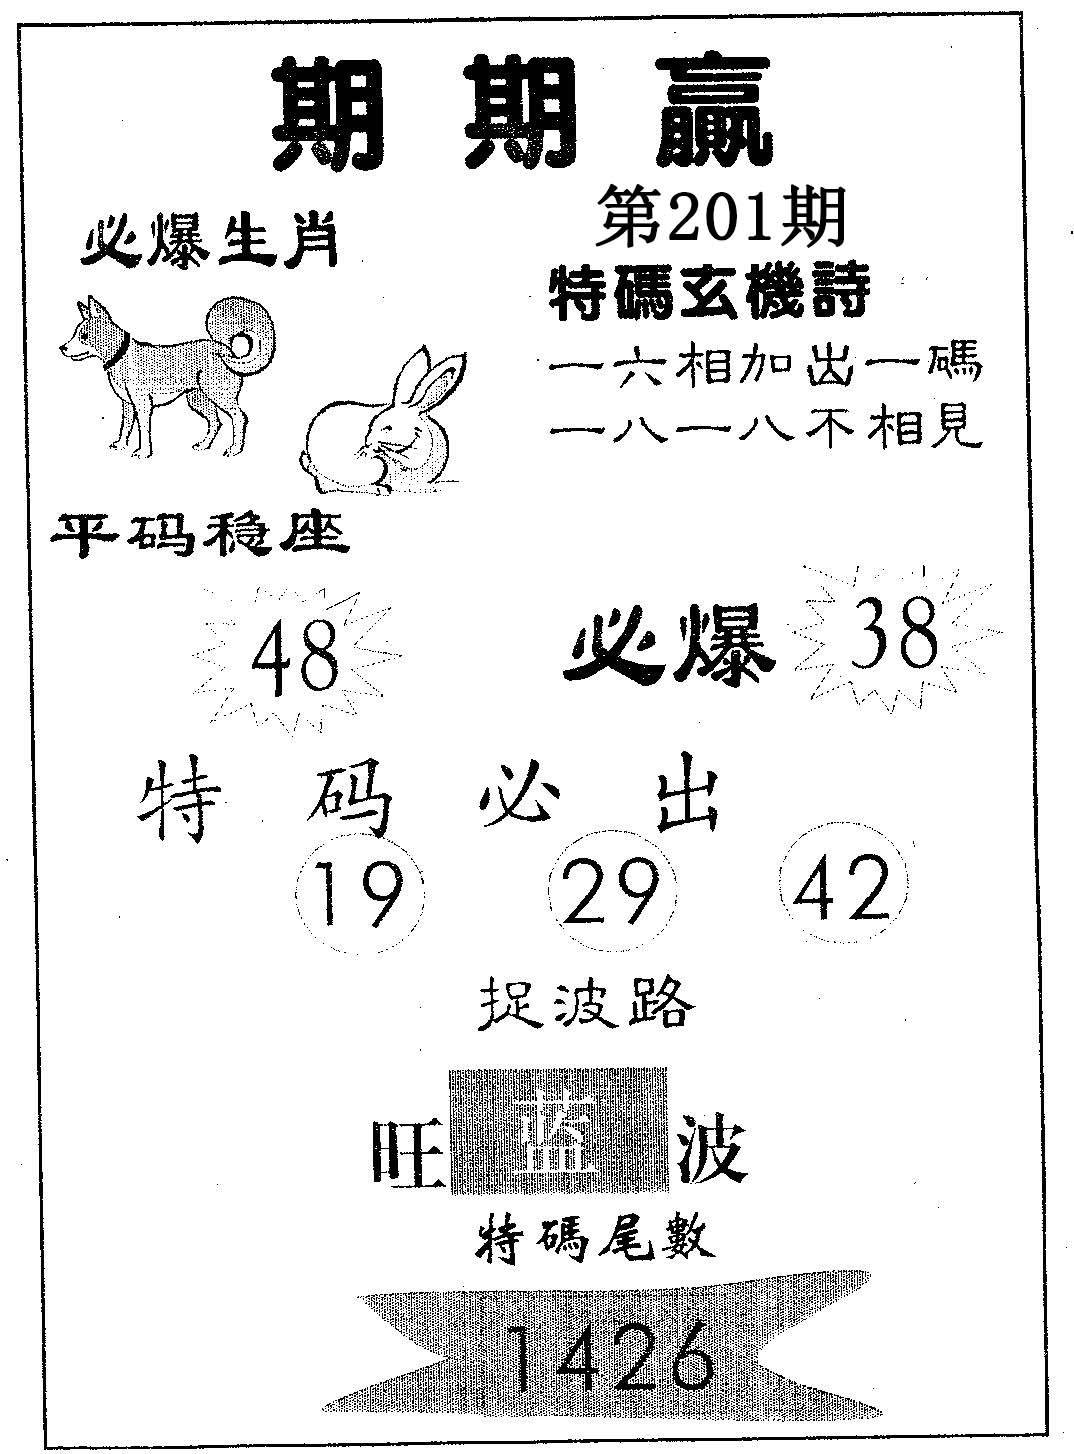 期期贏
第201期
必爆生肖
特碼玄機詩
一六相加出一碼
一八一八不相見
平码稳座
48
必爆 38
特码必出
19 29 42
捉波路
旺蓝波
特碼尾數
1426